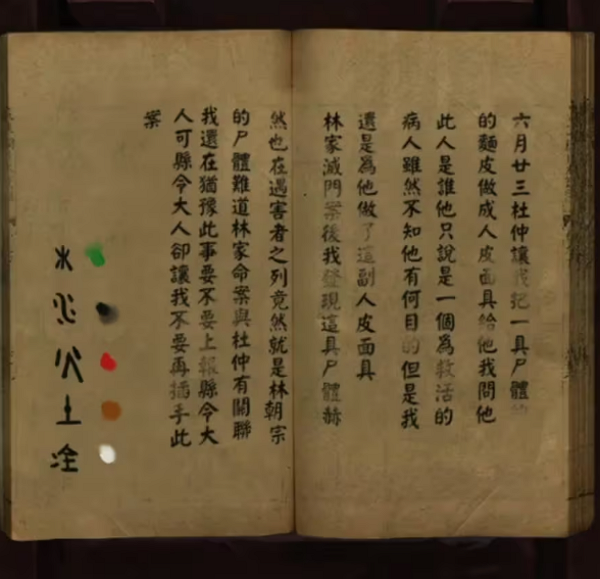 六月廿三杜仲讓我把一具尸體的
的麵皮做成人皮面具給他我問他
此人是誰他只說是一個為救活的
病人雖然不知他有何目的但是我
還是為他做了這副人皮面具
林家滅門案後我發現這具尸體赫
然也在遇害者之列竟然就是林朝宗
的尸體難道林家命案與杜仲有關聯
我還在猶豫此事要不要上報縣令大
人可縣令大人卻讓我不要再插手此
案